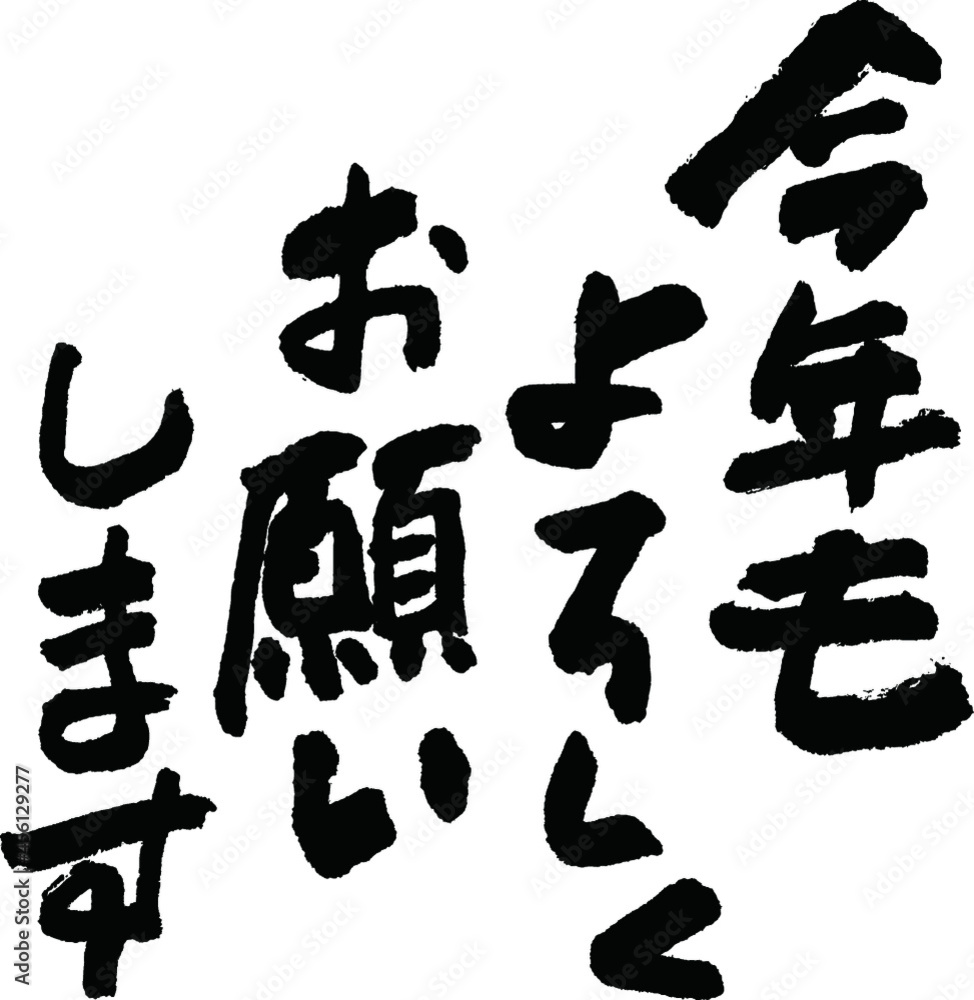 今年も
よろしく
お願い
します
Adobe Stock | #456129277